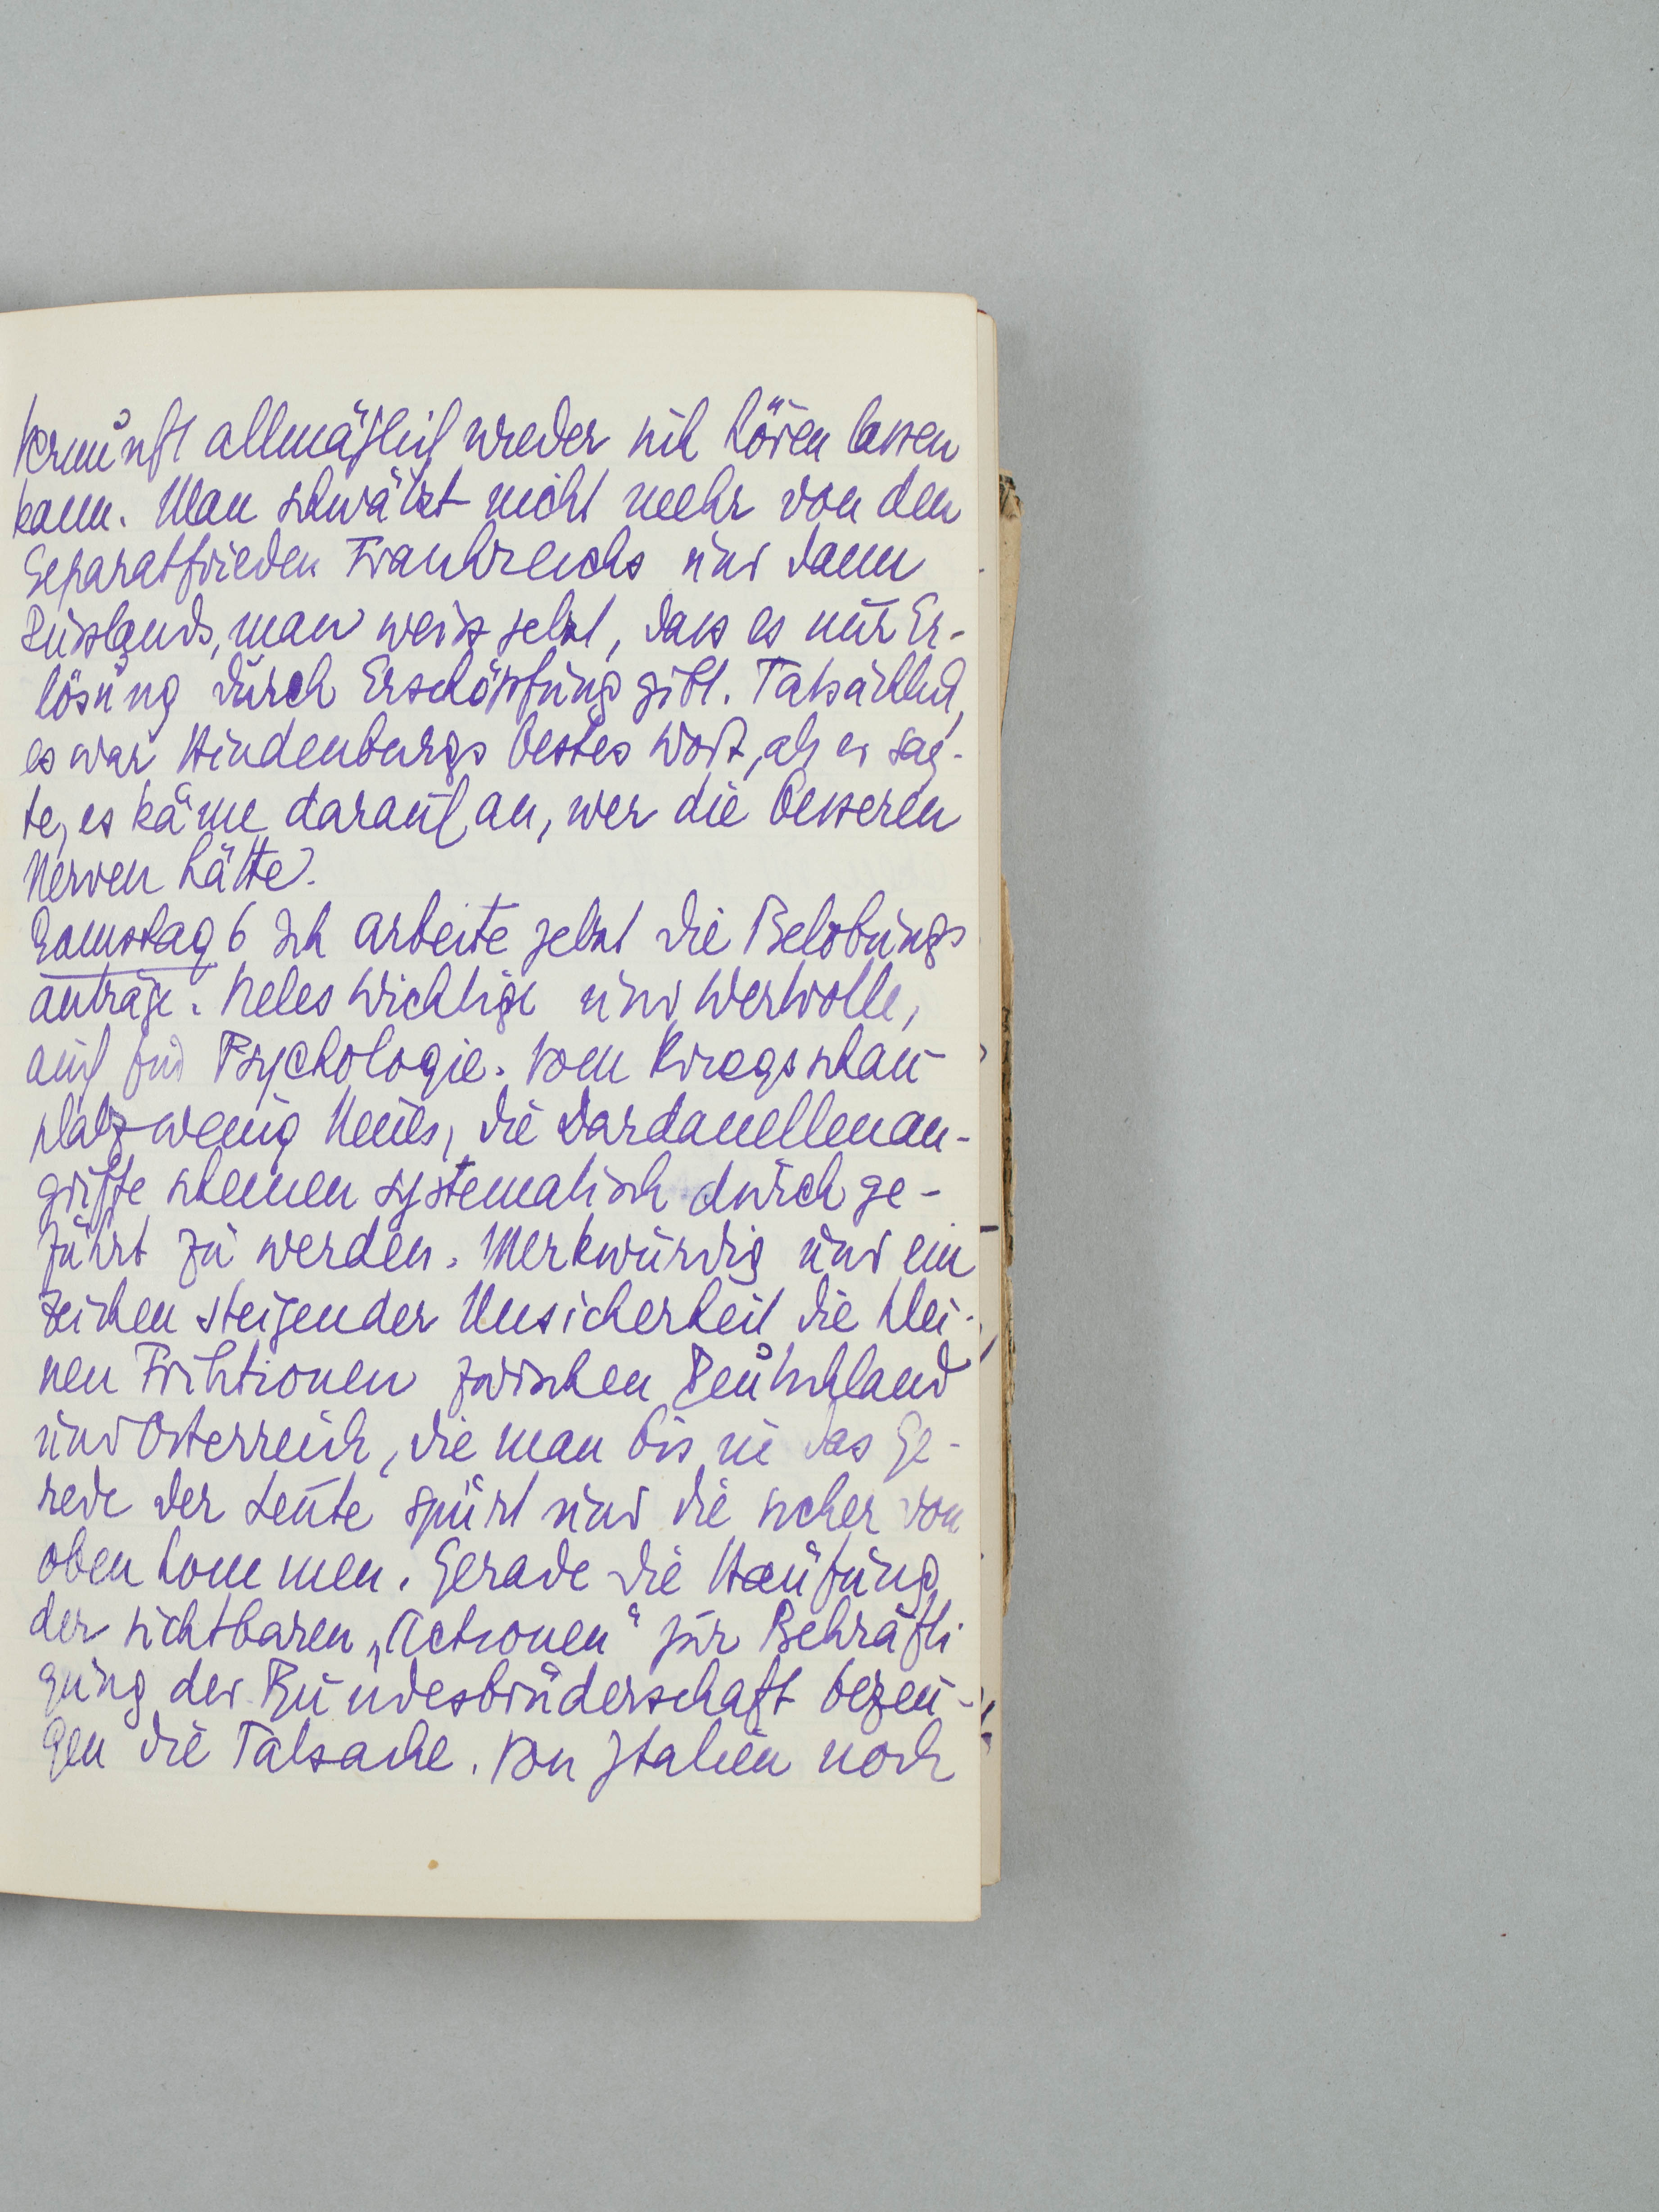 Vernunft allmählich wieder sich hören lassen
kann. Man schwätzt nicht mehr von den
Separatfrieden Frankreichs und dann
Russlands, man weiss jetzt, dass es nur Er-
lösung durch Erschöpfung gibt. Tatsächlich,
es war Hindenburgs bestes Wort, als er sag-
te, es käme darauf an, wer die besseren
Nerven hätte.
Samstag 6 Ich arbeite jetzt die Belobungs
anträge. Vieles Wichtige und Wertvolle,
auch für Psychologie. Vom Kriegsschau-
platz wenig Neues, die Dardanellenan-
griffe scheinen systematisch durchge-
führt zu werden. Merkwürdig und ein
Zeichen steigender Unsicherheit die klei-
nen Friktionen zwischen Deutschland
und Österreich, die man bis in das Ge-
rede der Leute spürt und die sicher von
oben kommen. Gerade die Häufung
der sichtbaren „Actionen“ zur Bekräfti
gung der Bundesbrüderschaft bezeu-
gen die Tatsache. Von Italien noch